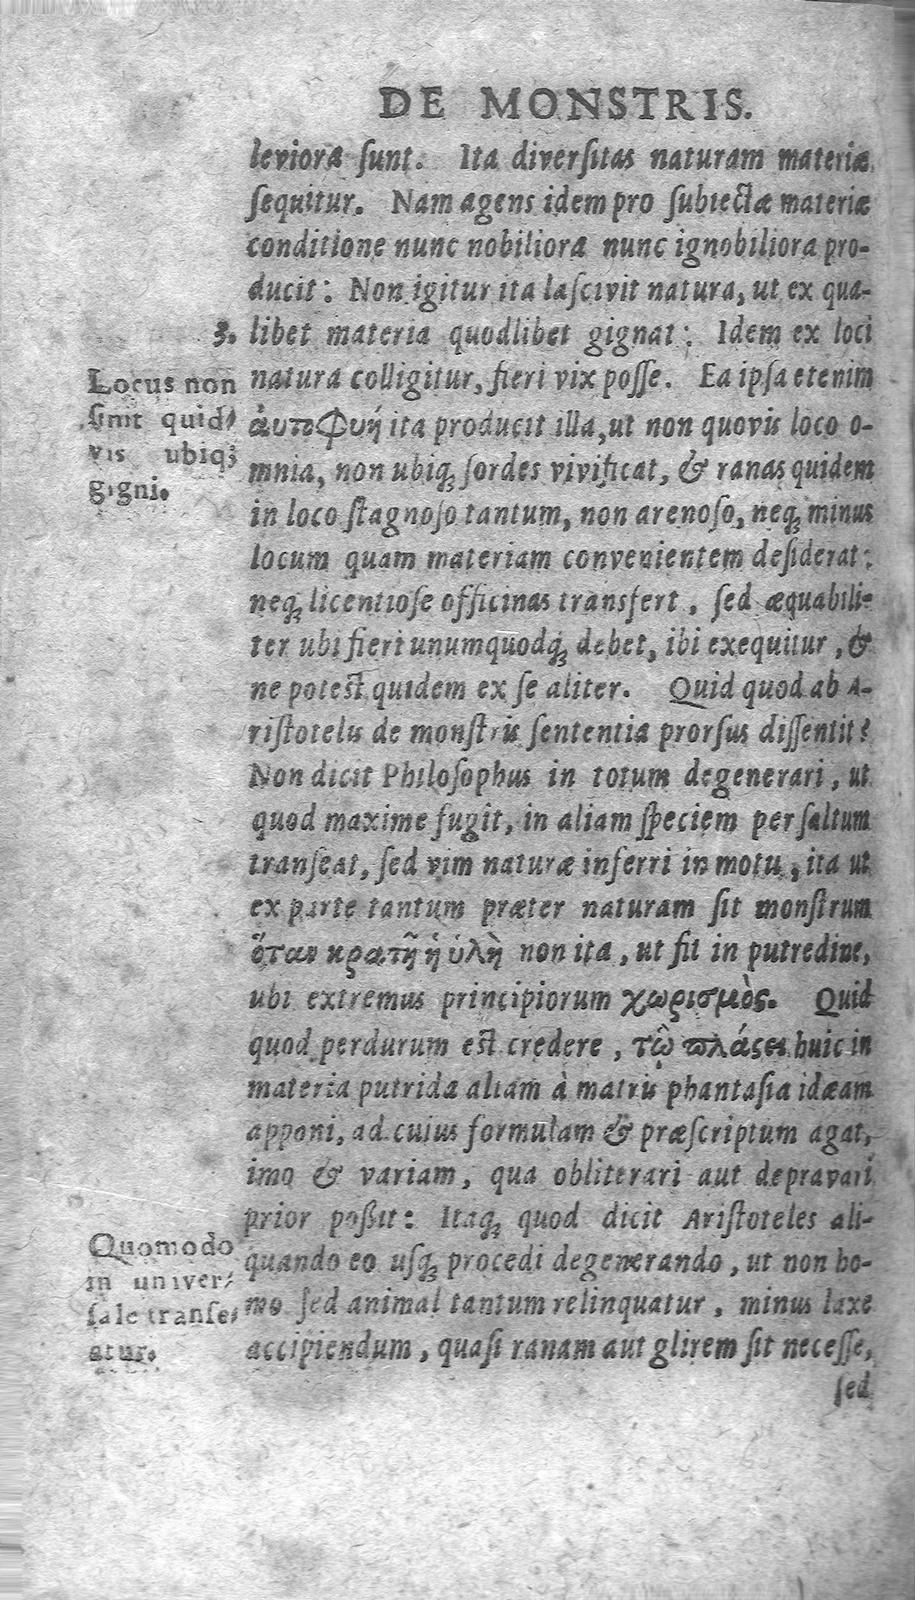 DE MONSTRIS.
leviora sunt. Ita diversitas naturam materiæ
sequitur. Nam agens idem pro subiectæ materiæ
conditione nunc nobiliora nunc ignobiliora pro-
ducit: Non igitur ita lascivit natura, ut ex qua-
3. libet materia quodlibet gignat: Idem ex loci
natura colligitur, fieri vix posse. Ea ipsa etenim
ἀυτοΦυή ita producit illa, ut non quovis loco o-
mnia, non ubiq; sordes vivificat, & ranas quidem
in loco stagnoso tantum, non arenoso, neq; minus
locum quam materiam convenientem desiderat:
neq; licentiose officinas transfert, sed æquabili-
ter ubi fieri unumquodq; debet, ibi exequitur, &
ne potest quidem ex se aliter. Quid quod ab A-
ristotelis de monstris sententia prorsus dissentit?
Non dicit Philosophus in totum degenerari, ut
quod maxime fugit, in aliam speciem per saltum
transeat, sed vim naturæ inferri in motu, ita ut
ex parte tantum præter naturam sit monstrum
ὅταν κρατῆ ἡ ὑλὴ non ita, ut fit in putredine,
ubi extremus principiorum χωρισμὸς. Quid
quod perdurum est credere, τῷ πλάσει huic in
materia putrida aliam à matris phantasia idæam
apponi, ad cuius formulam & præscriptum agat,
imo & variam, qua obliterari aut depravari
prior poßit: Itaq; quod dicit Aristoteles ali-
quando eo usq; procedi degenerando, ut non ho-
mo sed animal tantum relinquatur, minus laxe
accipiendum, quasi ranam aut glirem sit necesse,
sed
Locus non
sinit quid
vis ubiq;
gigni.
Quomodo
in univer-
sale transe-
atur.